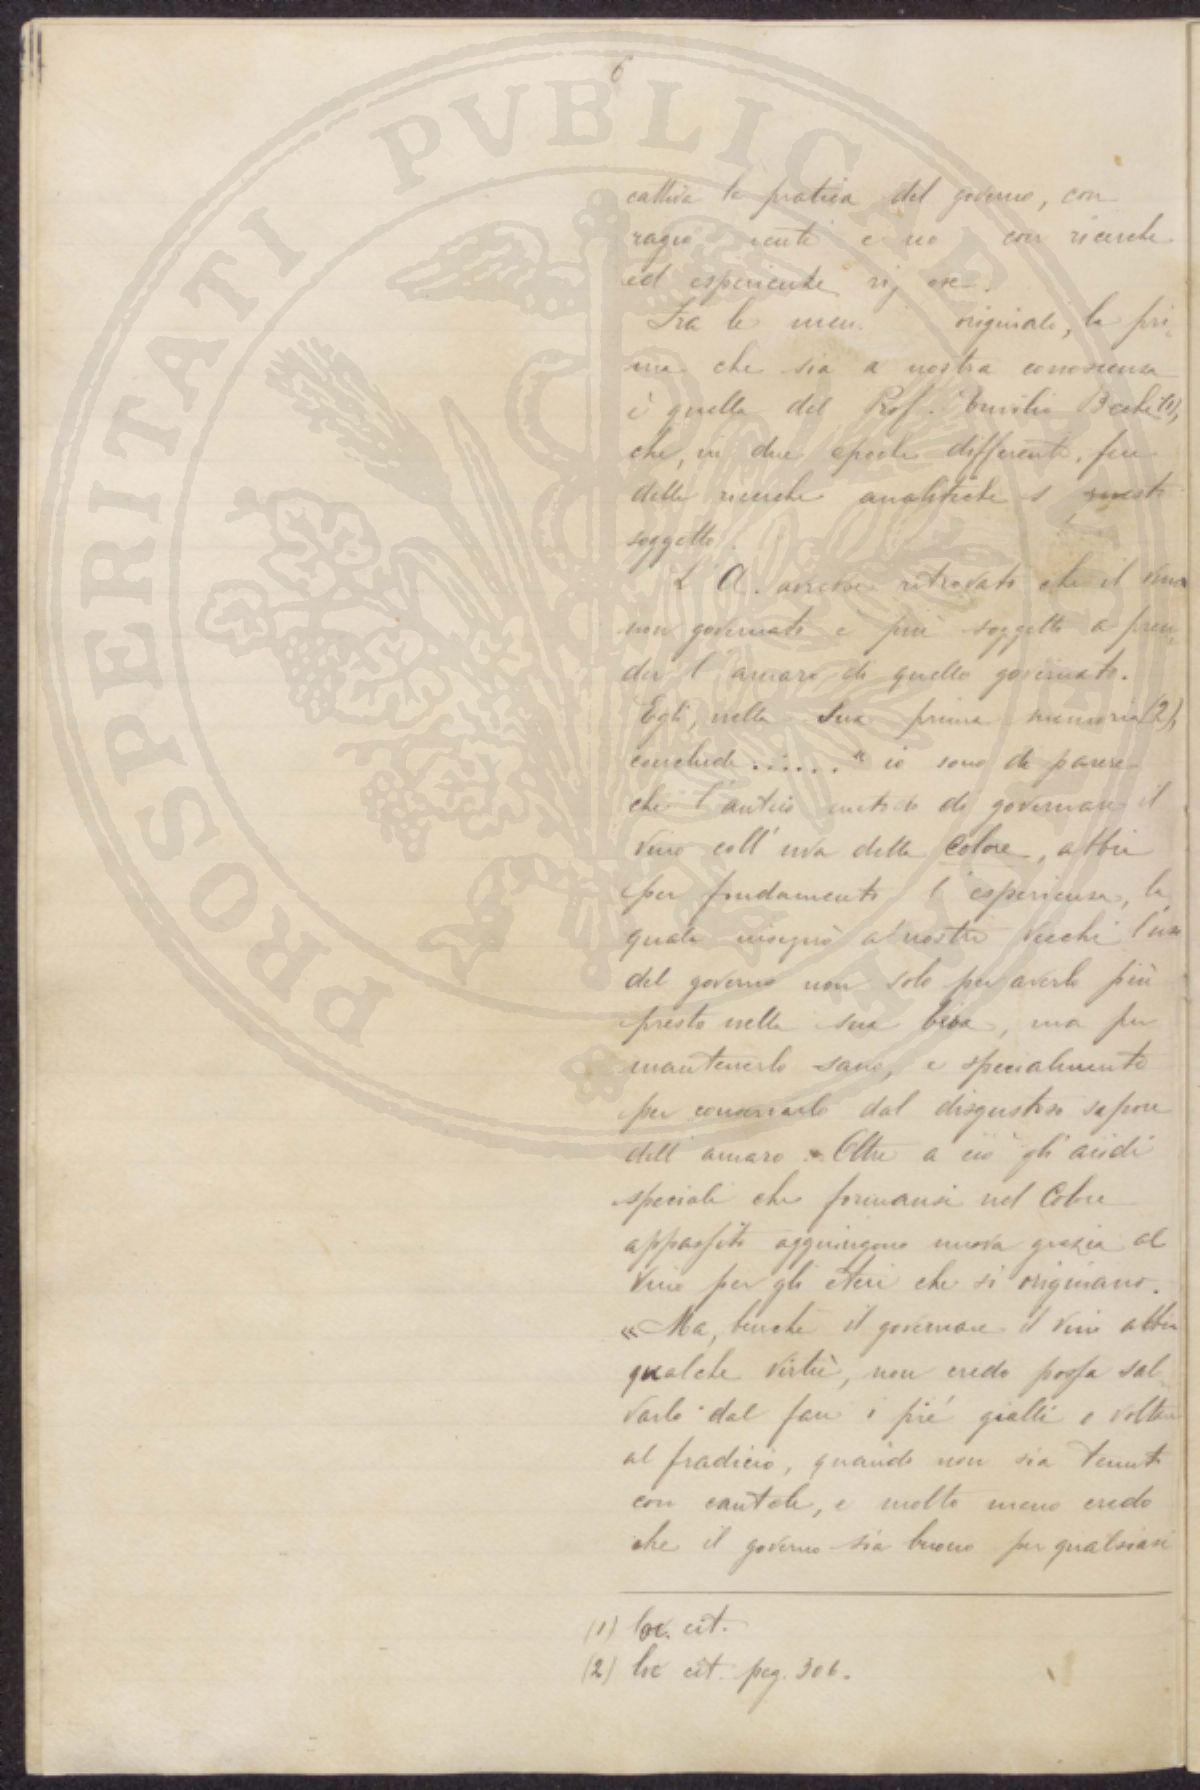 6
PROSPERITATI PVBLICAE AVGENDAE
cattiva la pratica del governo, con
e no con ricerche
ed esperienze
Fra le originali, la pri-
ma che sia a nostra conoscenza
è quella del Prof. Emilio Bechi (1),
che, in due epoche differenti, fece
delle ricerche analitiche s questo
soggetto.
L'A. avrebbe ritrovato che il vino
non governato è più soggetto a pren-
der l'amaro di quello governato.
Egli, nella sua prima memoria (2),
conclude ...... " io sono di parere
che l'antico metodo di governare il
vino coll'uva detta Colore, abbia
per fondamento l'esperienza, la
quale insegnò a' nostri vecchi l'uso
del governo non solo per averlo più
presto nella sua beva, ma per
mantenerlo sano, e specialmente
per conservarlo dal disgustoso sapore
dell'amaro. Oltre a ciò gli acidi
speciali che formansi nel Colore
appassito aggiungono nuova grazia al
vino per gli eteri che si originano.
«Ma, benché il governare il vino abbia
qualche virtù, non credo possa sal-
varlo dal fare i piè gialli e voltare
al fradicio, quando non sia tenuto
con cautele, e molto meno credo
che il governo sia buono per qualsiasi
(1) loc. cit.
(2) loc cit. pag. 306.